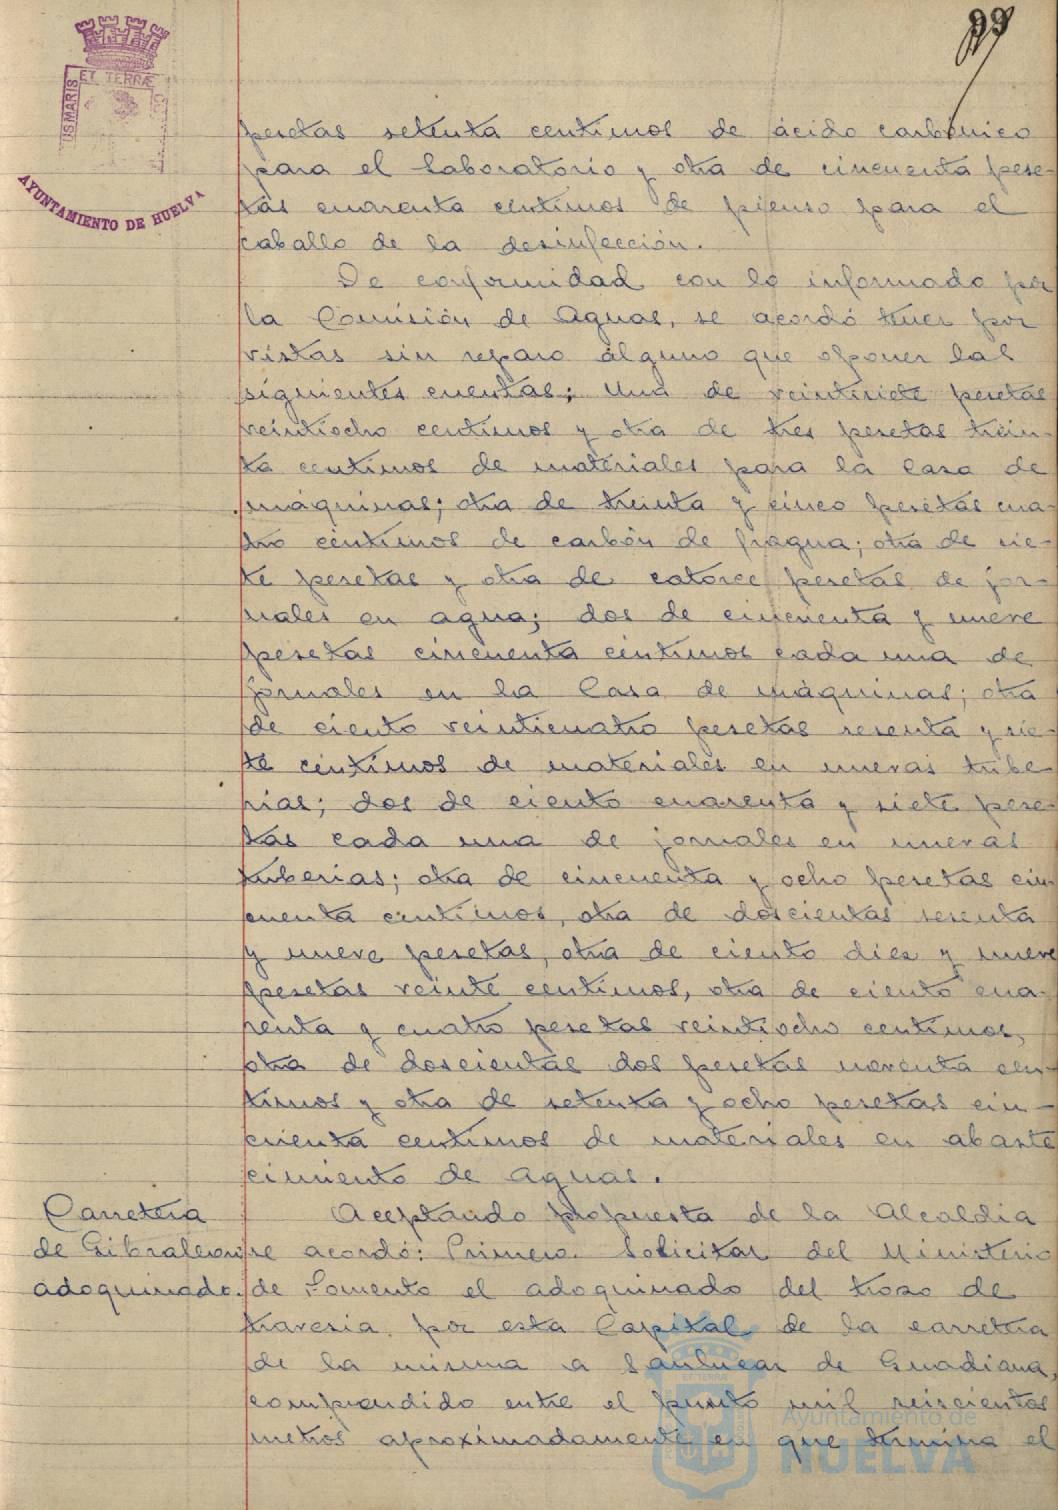 99
ET TERRÆ
IS MARIS
AYUNTAMIENTO DE HUELVA
pesetas setenta centimos de ácido carbónico
para el Laboratorio y otra de cincuenta pese-
tas cuarenta centimos de pienso para el
caballo de la desinfección.
De conformidad con lo informado por
la Comisión de Aguas, se acordó tener por
vistas sin reparo alguno que oponer las
siguientes cuentas; Una de veintisiete pesetas
veintiocho centimos y otra de tres pesetas trein-
ta centimos de materiales para la Casa de
máquinas; otra de treinta y cinco pesetas cua-
tro centimos de carbón de fragua; otra de sie-
te pesetas y otra de catorce pesetas de jor-
nales en agua; dos de cincuenta y nueve
pesetas cincuenta centimos cada una de
jornales en la Casa de máquinas; otra
de ciento veinticuatro pesetas sesenta y sie-
te centimos de materiales en nuevas tube
rias; dos de ciento cuarenta y siete pese-
tas cada una de jornales en nuevas
tuberias; otra de cincuenta y ocho pesetas cin-
cuenta centimos, otra de doscientas sesenta
y nueve pesetas, otra de ciento diez y nueve
pesetas veinte centimos, otra de ciento cua-
renta y cuatro pesetas veintiocho centimos,
otra de doscientas dos pesetas noventa cen-
timos y otra de setenta y ocho pesetas cin-
cuenta centimos de materiales en abaste
cimiento de aguas.
Carretera
de Gibraleon
adoquinado.
Aceptando propuesta de la Alcaldia
se acordó: Primero. Solicitar del Ministerio
de Fomento el adoquinado del trozo de
travesia por esta Capital de la carretera
de la misma a Sanlucar de Guadiana,
comprendido entre el punto mil seiscientos
metros aproximadamente en que termina el
Ayuntamiento de
HUELVA